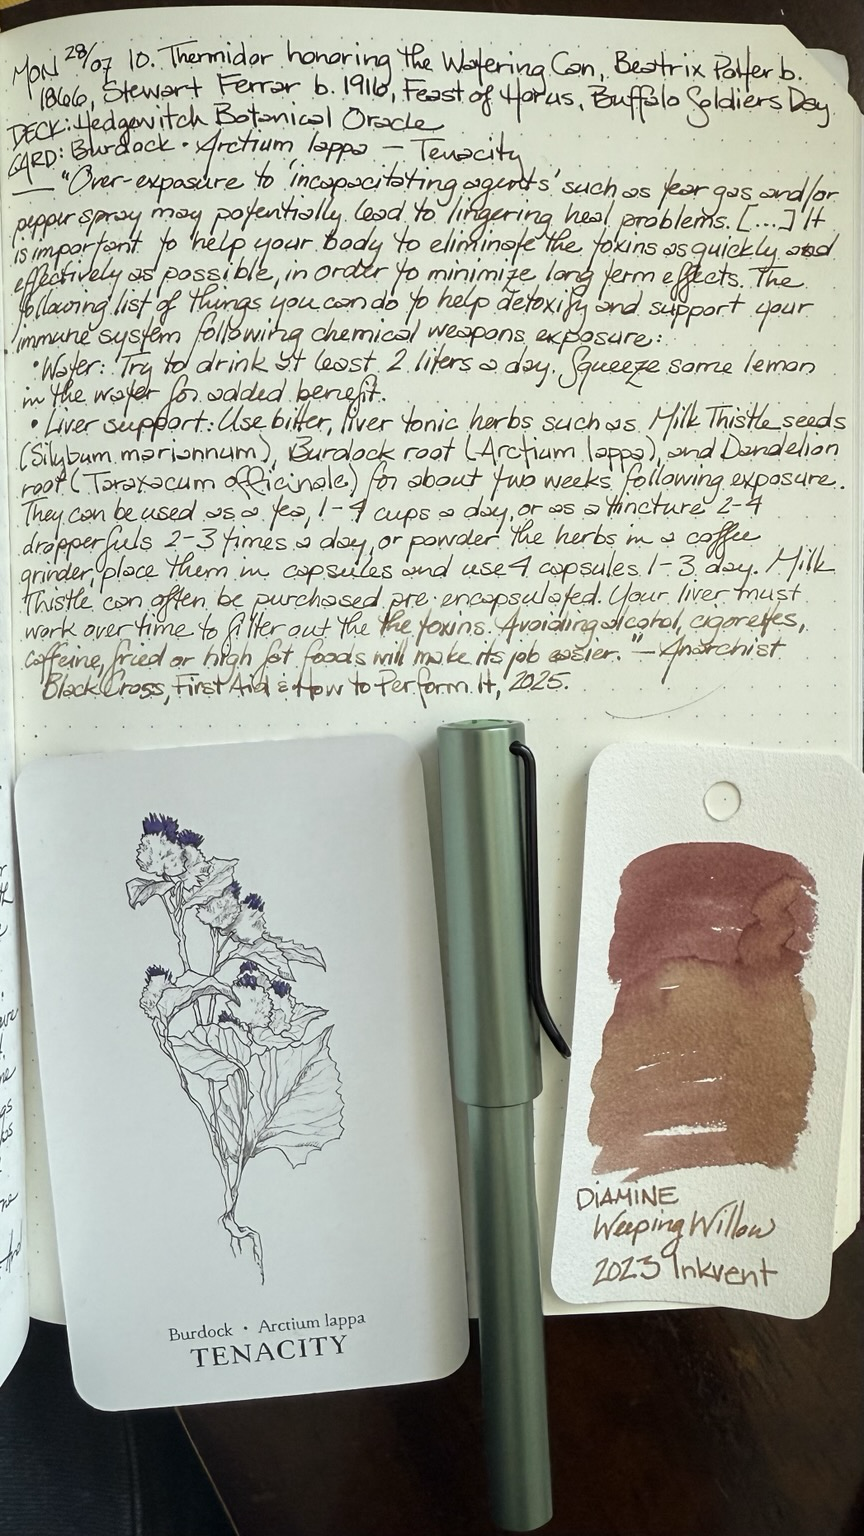 MON 28/07 10. Thermidor honoring the Watering Can, Beatrix Potter b.
1866, Stewart Ferrar b. 1916, Feast of Horus, Buffalo Soldiers Day
DECK: Hedgewitch Botanical Oracle
CARD: Burdock • Arctium lappa — Tenacity
— "Over-exposure to 'incapacitating agents' such as tear gas and/or
pepper spray may potentially lead to lingering heal problems. [...] It
is important to help your body to eliminate the toxins as quickly and
effectively as possible, in order to minimize long term effects. The
following list of things you can do to help detoxify and support your
immune system following chemical weapons exposure:
• Water: Try to drink at least 2 liters a day. Squeeze some lemon
in the water for added benefit.
• Liver support: Use bitter, liver tonic herbs such as Milk Thistle seeds
(Silybum mariannum), Burdock root (Arctium lappa), and Dandelion
root (Taraxacum officinale) for about two weeks following exposure.
They can be used as a tea, 1-4 cups a day, or as a tincture 2-4
dropperfuls 2-3 times a day, or powder the herbs in a coffee
grinder, place them in capsules and use 4 capsules 1-3 day. Milk
Thistle can often be purchased pre-encapsulated. Your liver must
work overtime to filter out the the toxins. Avoiding alcohol, cigarettes,
caffeine, fried or high fat foods will make its job easier." — Anarchist
Black Cross, First Aid & How to Perform It, 2025.
Burdock • Arctium lappa
TENACITY
DIAMINE
Weeping Willow
2023 Inkvent